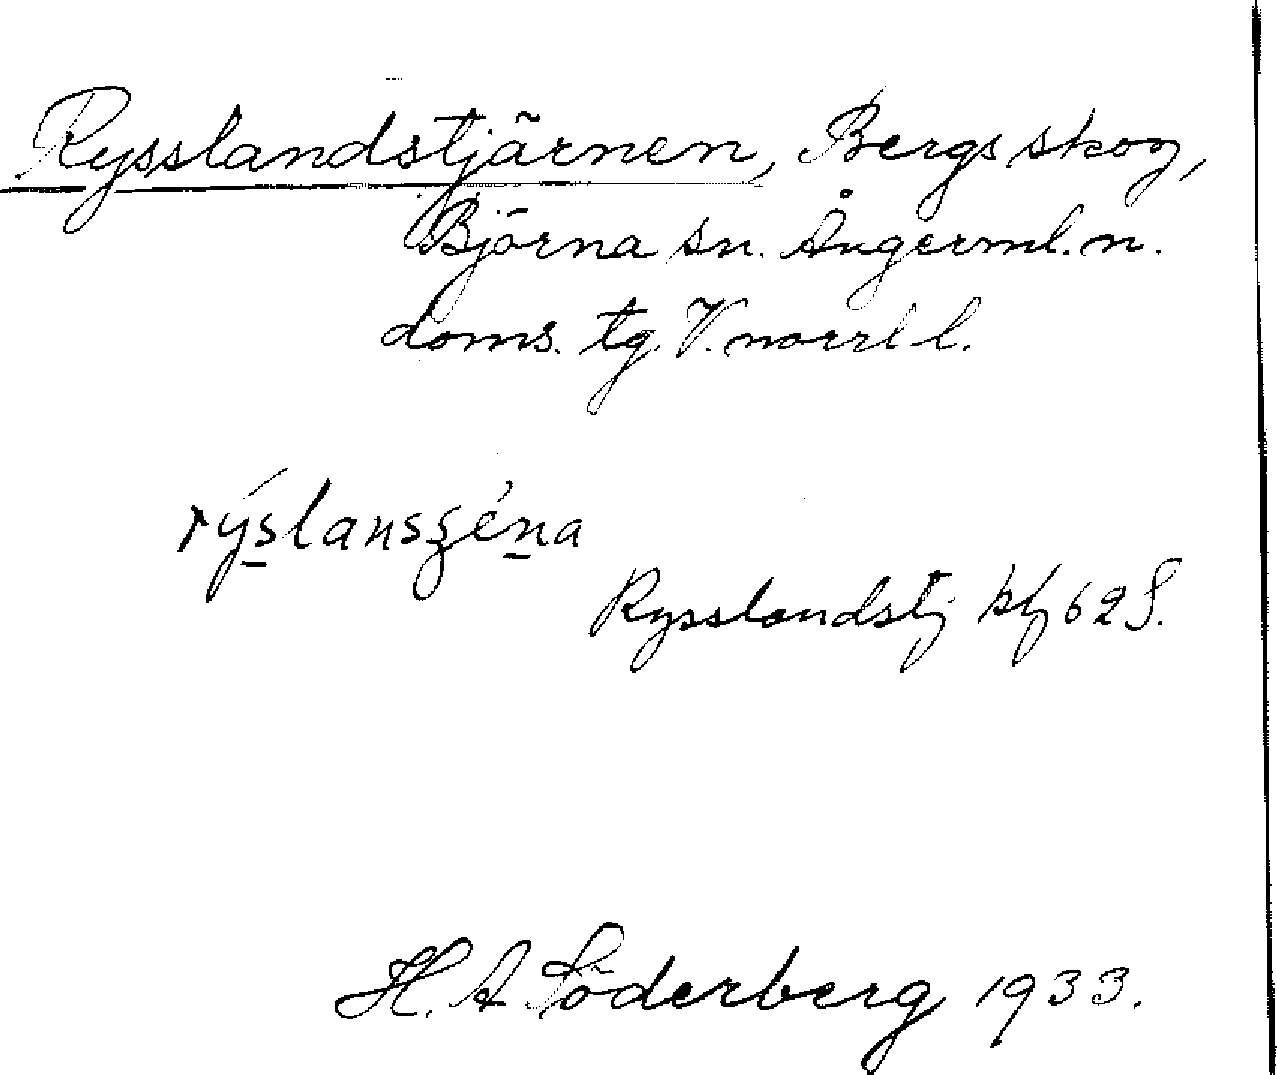 Rysslandstjärnen, Bergs skog,
Björna sn. Ångerml. n.
doms. tg. V. norrl l.
rýslansʒéna
Rysslandstj kbl 62 S.
H. A Söderberg 1933.